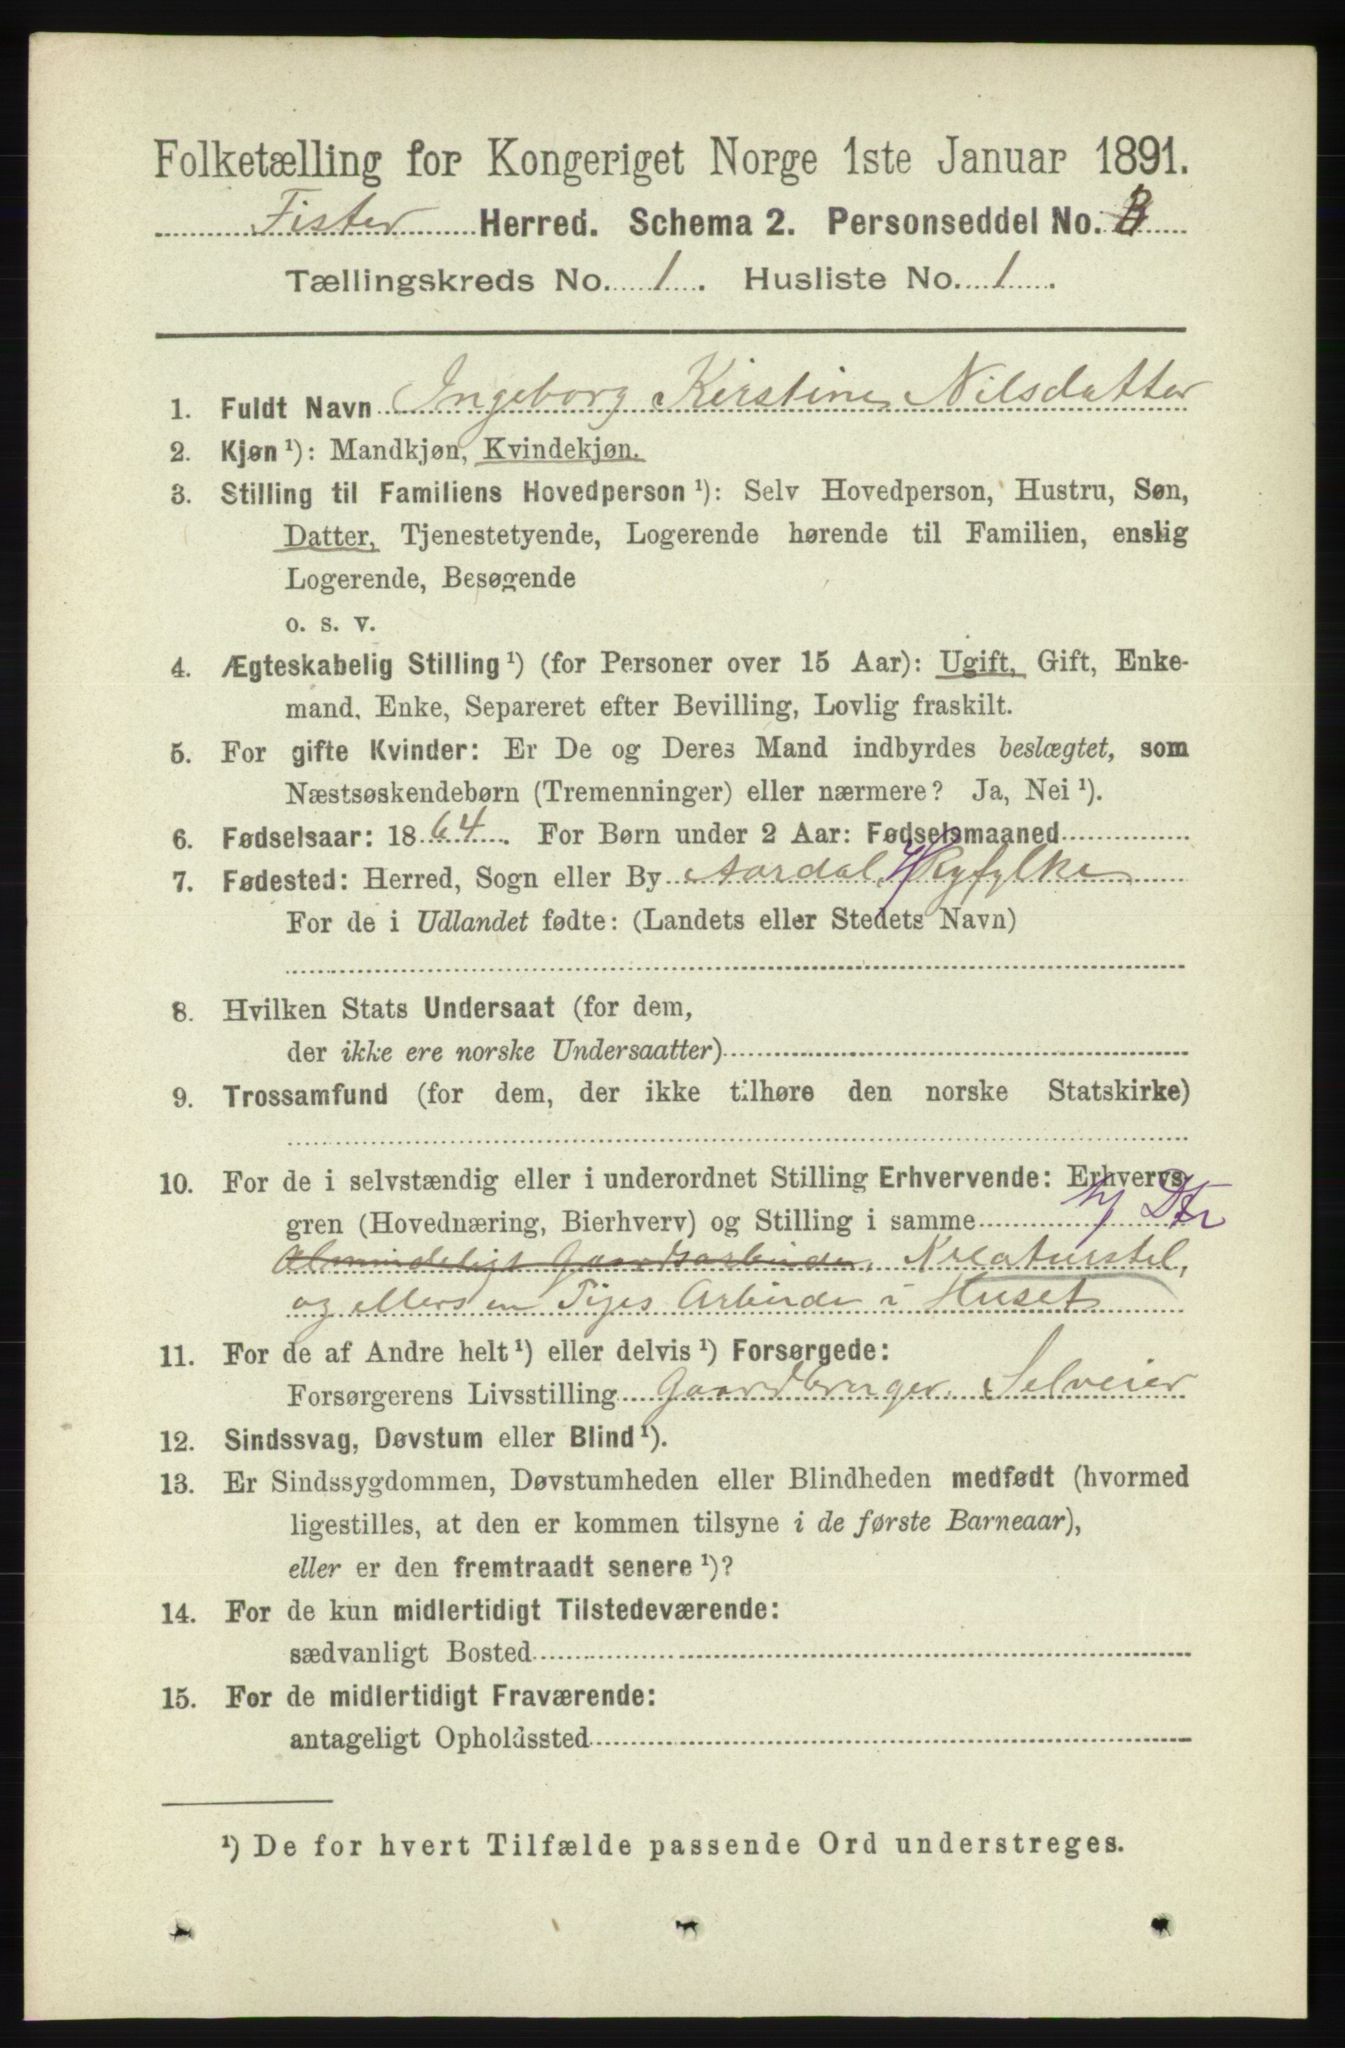 Folketælling for Kongeriget Norge 1ste Januar 1891.
Fister Herred. Schema 2. Personseddel No.
Tællingskreds No. 1. Husliste No. 1.
1. Fuldt Navn Ingeborg Kirstine Nilsdatter
2. Kjøn ¹): Mandkjøn, Kvindekjøn.
3. Stilling til Familiens Hovedperson ¹): Selv Hovedperson, Hustru, Søn,
Datter, Tjenestetyende, Logerende hørende til Familien, enslig
Logerende, Besøgende
o. s. v.
4. Ægteskabelig Stilling ¹) (for Personer over 15 Aar): Ugift, Gift, Enke-
mand, Enke, Separeret efter Bevilling, Lovlig fraskilt.
5. For gifte Kvinder: Er De og Deres Mand indbyrdes beslægtet, som
Næstsøskendebørn (Tremenninger) eller nærmere? Ja, Nei ¹).
6. Fødselsaar: 1864. For Børn under 2 Aar: Fødselsmaaned
7. Fødested: Herred, Sogn eller By Aardal Ryfylke
For de i Udlandet fødte: (Landets eller Stedets Navn)
8. Hvilken Stats Undersaat (for dem,
der ikke ere norske Undersaatter)
9. Trossamfund (for dem, der ikke tilhøre den norske Statskirke)
10. For de i selvstændig eller i underordnet Stilling Erhvervende: Erhvervs-
gren (Hovednæring, Bierhverv) og Stilling i samme
Almindeligt Gaardsarbeide, Kreaturstel,
og ellers en Piges Arbeide i Huset
11. For de af Andre helt ¹) eller delvis ¹) Forsørgede:
Forsørgerens Livsstilling Gaardbruger, Selveier
12. Sindssvag, Døvstum eller Blind ¹).
13. Er Sindssygdommen, Døvstumheden eller Blindheden medfødt (hvormed
ligestilles, at den er kommen tilsyne i de første Barneaar),
eller er den fremtraadt senere ¹)?
14. For de kun midlertidigt Tilstedeværende:
sædvanligt Bosted
15. For de midlertidigt Fraværende:
antageligt Opholdssted
¹) De for hvert Tilfælde passende Ord understreges.